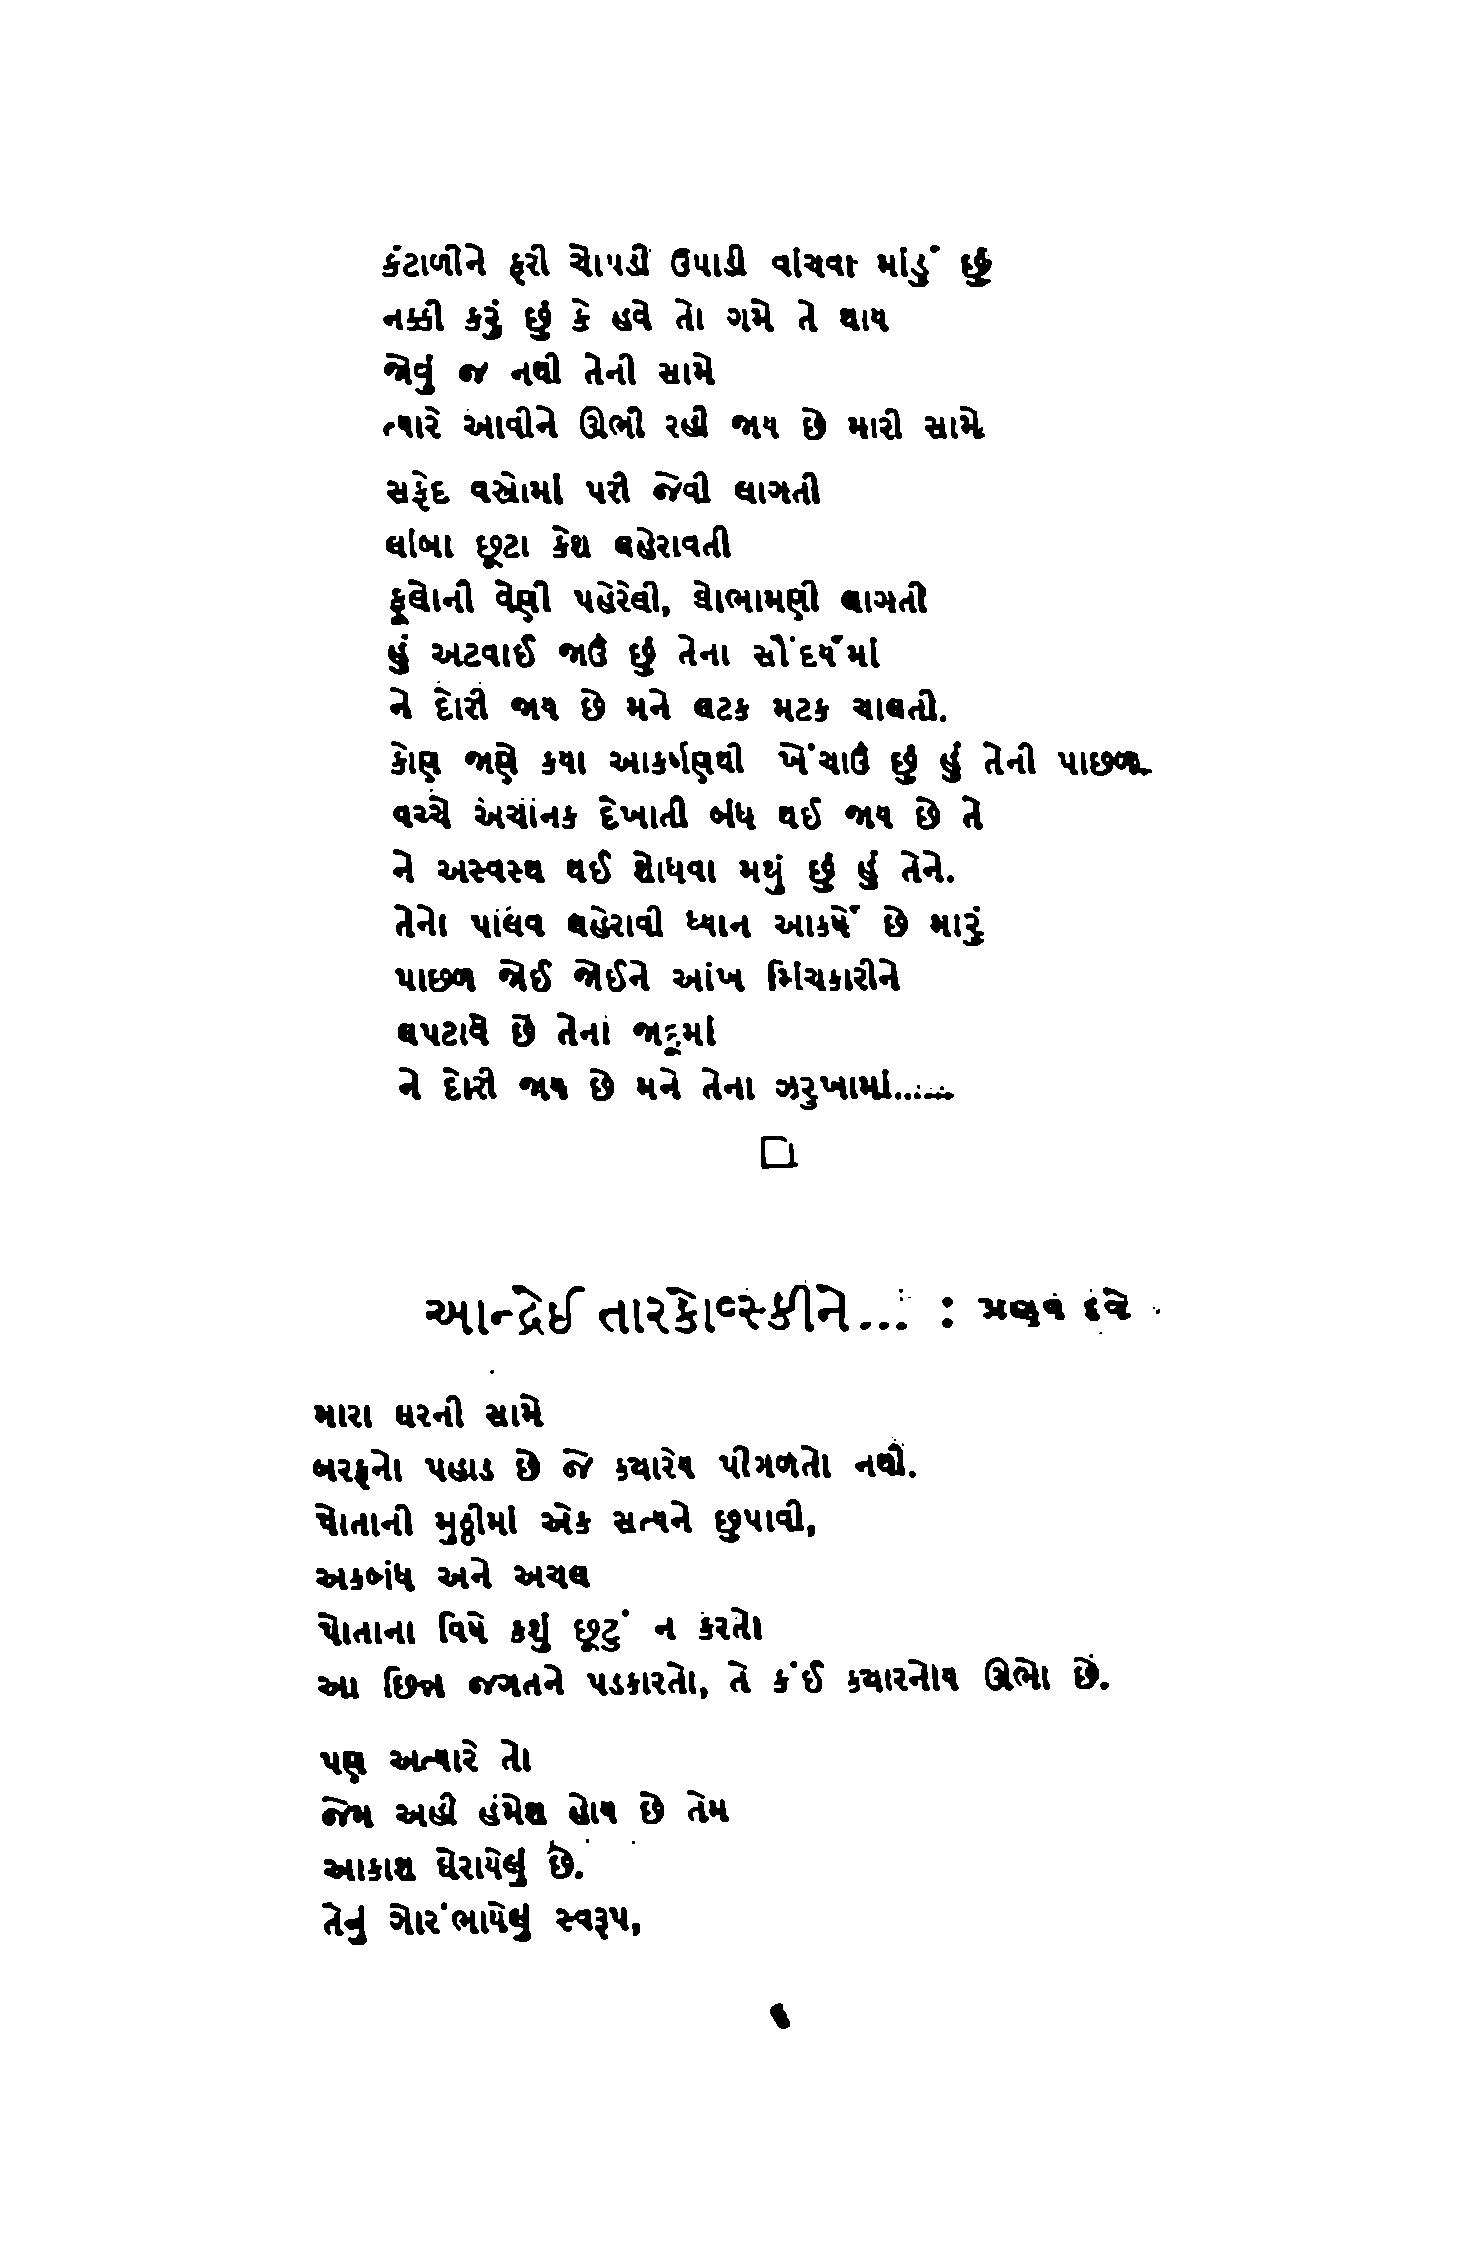 કંટાળીને ફરી ચોપડી ઉપાડી વાંચવા માંડું છું
નક્કી કરું છું કે હવે તો ગમે તે થાય
જોવું જ નથી તેની સામે
ત્યારે આવીને ઊભી રહી જાય છે મારી સામે
સફેદ વસ્ત્રોમાં પરી જેવી લાગતી
લાંબા છૂટા કેશ લહેરાવતી
ફૂલોની વેણી પહેરેલી, લોભામણી લાગતી
હું અટવાઈ જાઉં છું તેના સૌંદર્યમાં
ને દોરી જાય છે મને લટક મટક ચાલતી.
કોણ જાણે કયા આકર્ષણથી ખેંચાઉં છું હું તેની પાછળ
વચ્ચે અચાનક દેખાતી બંધ થઈ જાય છે તે
ને અસ્વસ્થ થઈ શોધવા મથું છું હું તેને.
તેનો પાલવ લહેરાવી ધ્યાન આકર્ષે છે મારું
પાછળ જોઈ જોઈને આંખ મિંચકારીને
લપટાવે છે તેનાં જાદૂમાં
ને દોરી જાય છે મને તેના ઝરુખામાં......
આન્દ્રેઈ તારકોવ્સ્કીને... : પ્રણવ દવે
મારા ઘરની સામે
બરફનો પહાડ છે જે ક્યારેય પીગળતો નથી.
પોતાની મુઠ્ઠીમાં એક સત્યને છુપાવી,
અકબંધ અને અચલ
પોતાના વિષે કશું છૂટું ન કરતો
આ છિન્ન જગતને પડકારતો, તે કંઈ ક્યારનોય ઊભો છે.
પણ અત્યારે તો
જેમ અહીં હંમેશ હોય છે તેમ
આકાશ ઘેરાયેલું છે.
તેનું ગોરંભાયેલું સ્વરૂપ,